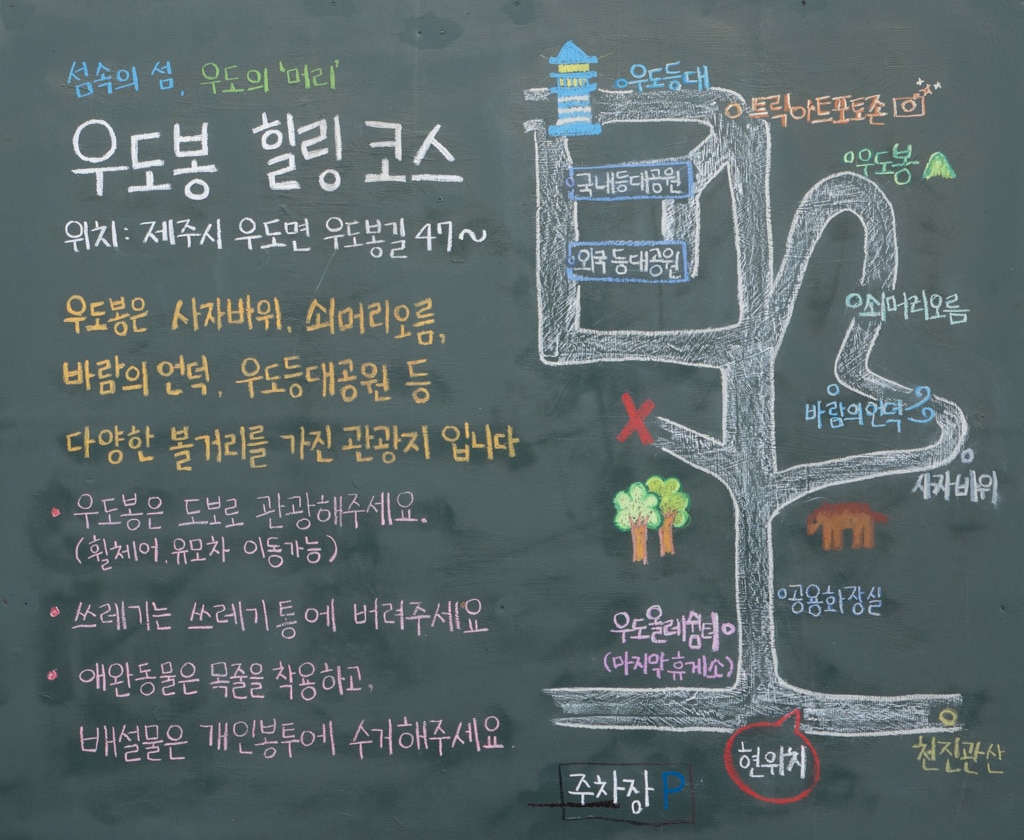 섬속의 섬, 우도의 '머리'
우도봉 힐링 코스
위치: 제주시 우도면 우도봉길 47~
우도봉은 사자바위, 쇠머리오름,
바람의언덕, 우도등대공원 등
다양한 볼거리를 가진 관광지 입니다
• 우도봉은 도보로 관광해주세요.
(휠체어, 유모차 이동가능)
• 쓰레기는 쓰레기통에 버려주세요
• 애완동물은 목줄을 착용하고,
배설물은 개인봉투에 수거해주세요.
우도등대
트릭아트포토존
우도봉
국내등대공원
외국등대공원
쇠머리오름
바람의언덕
X
사자바위
공용화장실
우도올레쉼터
(마지막휴게소)
천진관산
현위치
주차장 P